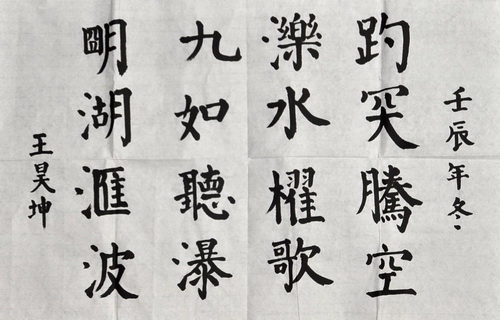 壬辰年冬
趵突騰空
濼水櫂歌
九如聽瀑
朙湖滙波
王昊坤